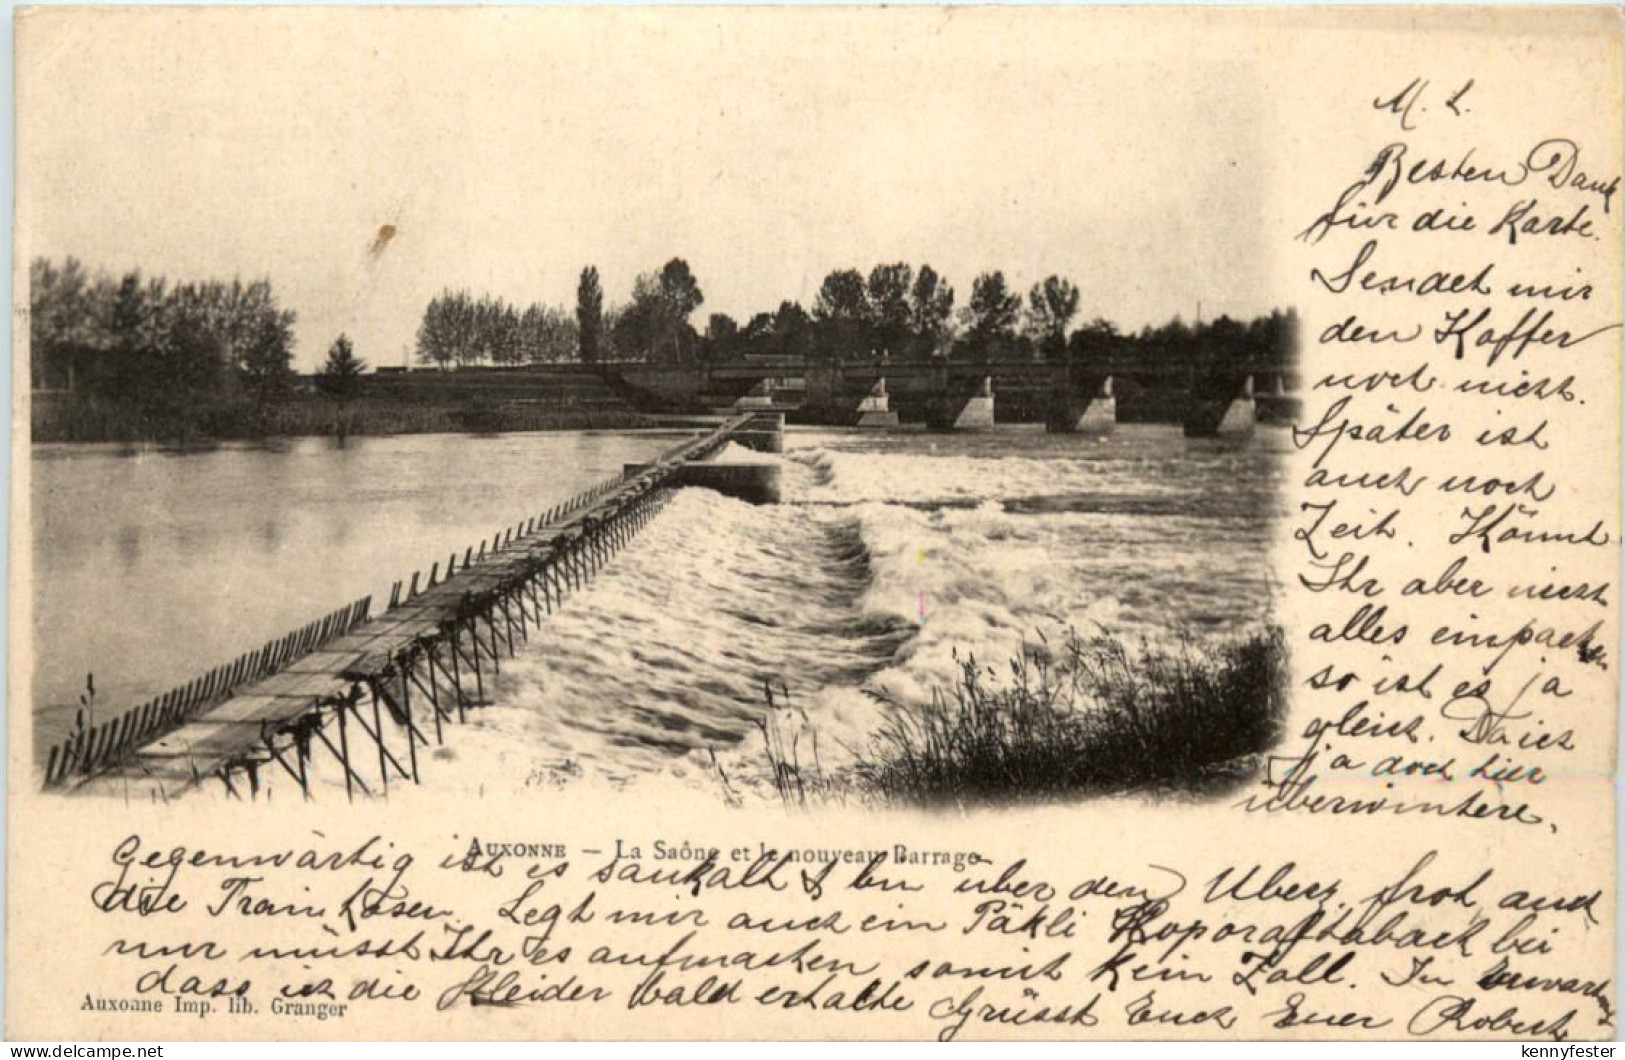 M. L.
Besten Dank
für die Karte.
Sendet mir
den Koffer
noch nicht.
Später ist
auch noch
Zeit. Könnt
Ihr aber nicht
alles einpacken
so ist es ja
gleich. Da ich
ja doch hier
überwintere.
AUXONNE — La Saône et le nouveau Barrage
Gegenwärtig ist es saukalt & bin über den Überz. froh, auch
die Train hosen. Legt mir auch ein Päkli Koporaltaback bei
nur müsst Ihr es aufmachen somit kein Zoll. In Erwart
dass ich die Kleider bald erhalte Grüsst Euch Euer Robert
Auxonne Imp. lib. Granger
delcampe.net
kennyfester